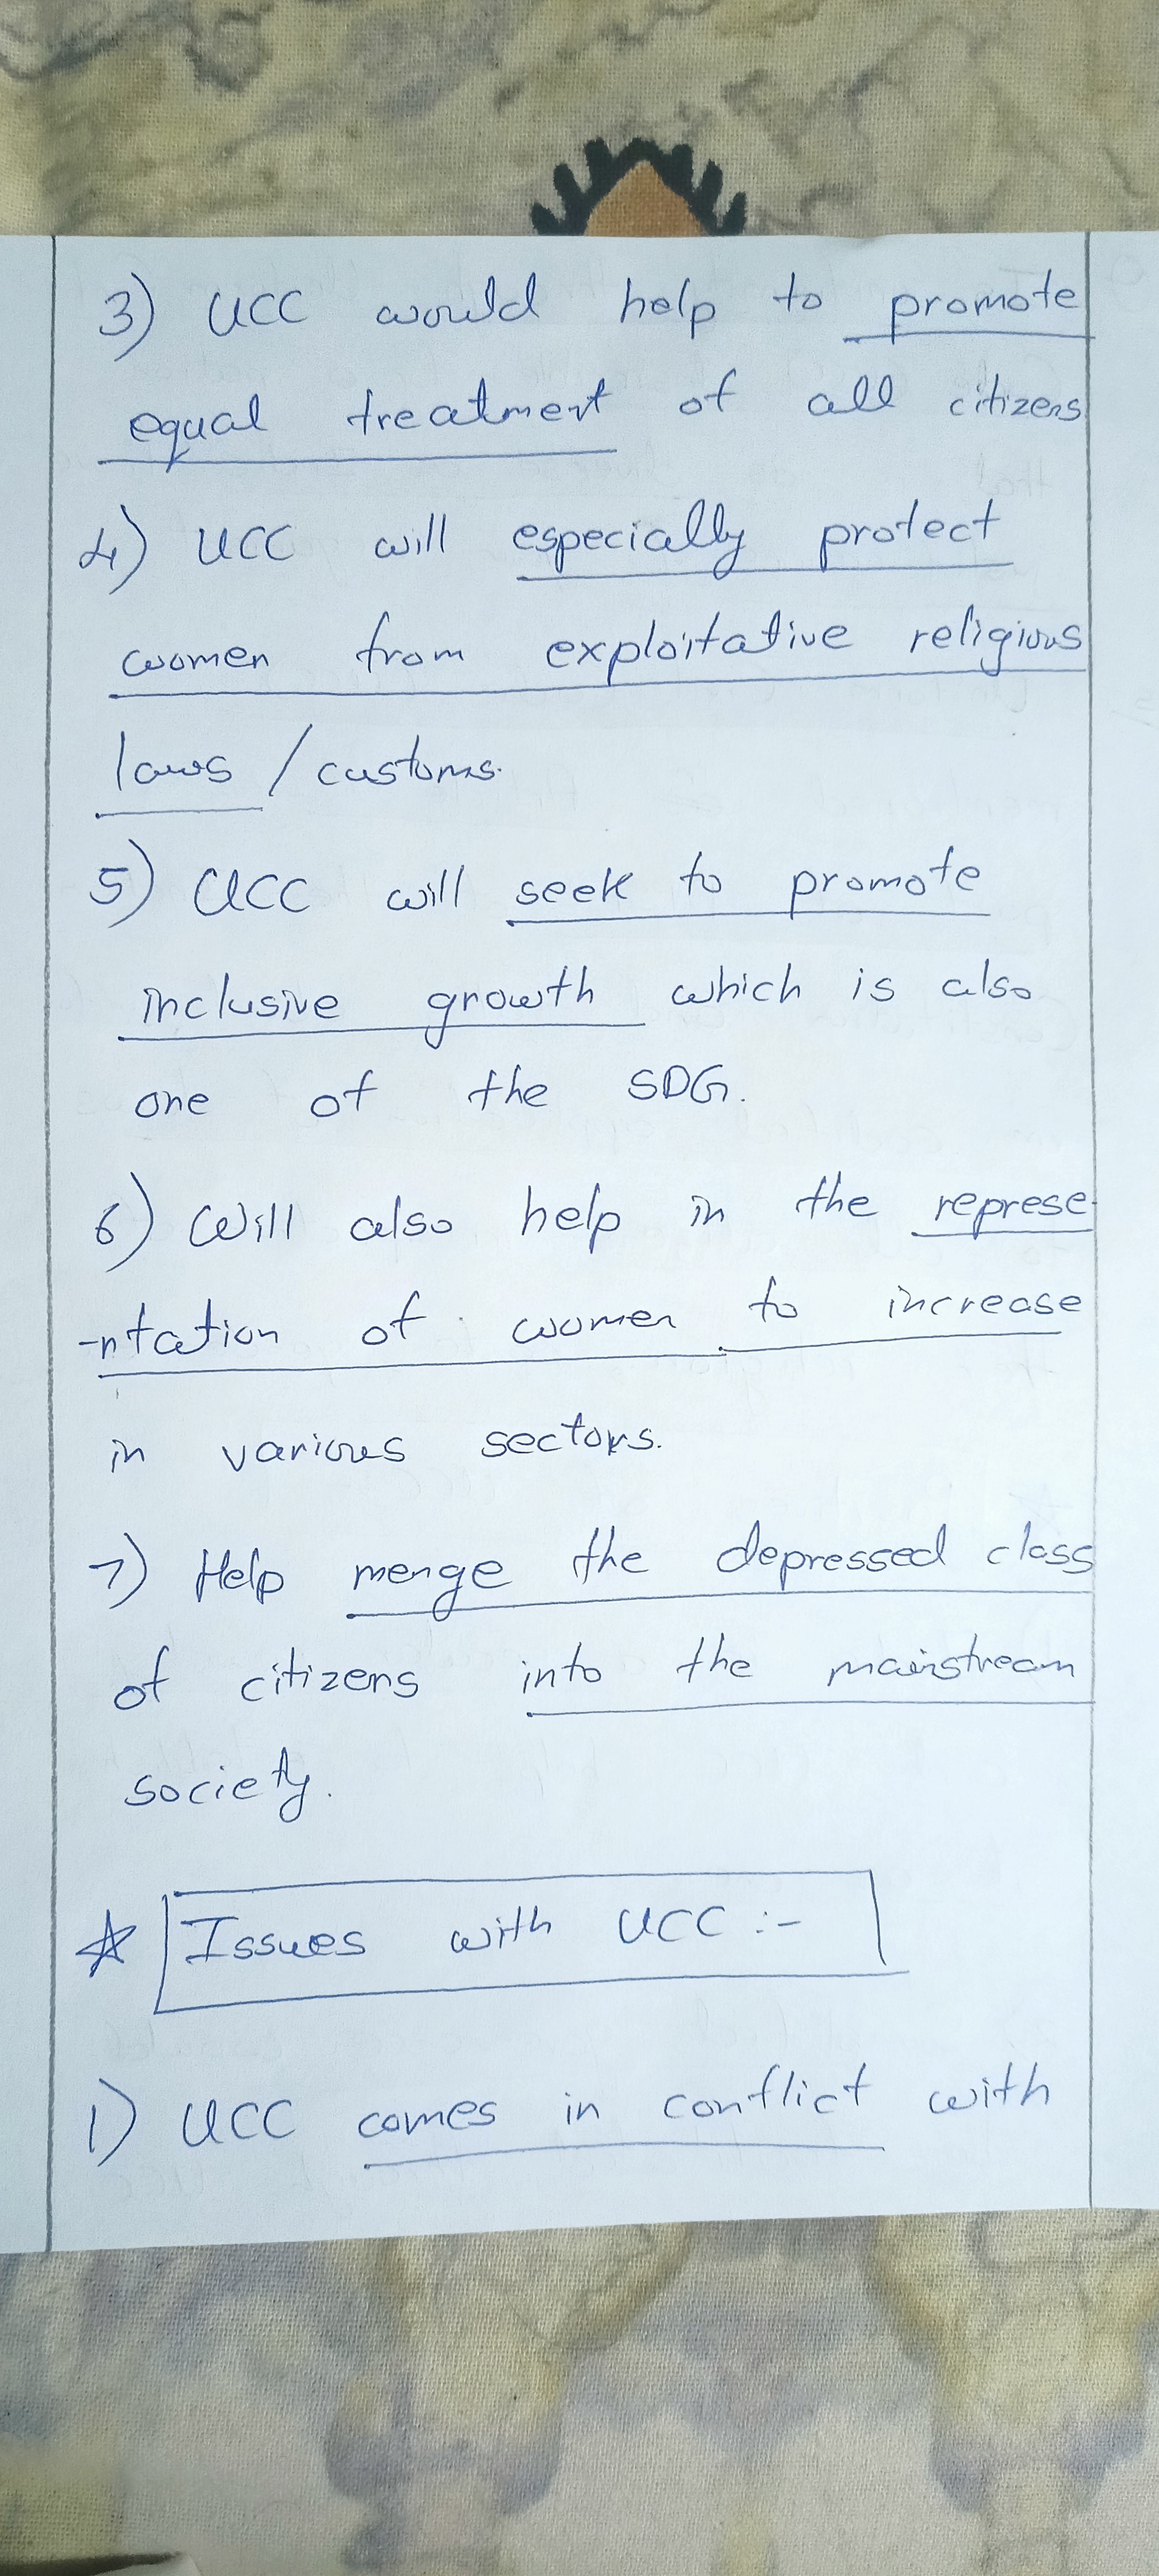 3) UCC would help to promote
equal treatment of all citizens
4) UCC will especially protect
women from exploitative religious
laws / customs.
5) UCC will seek to promote
inclusive growth which is also
one of the SDG.
6) Will also help in the represe-
-ntation of women to increase
in various sectors.
7) Help merge the depressed class
of citizens into the mainstream
society.
☆ Issues with UCC :-
1) UCC comes in conflict with